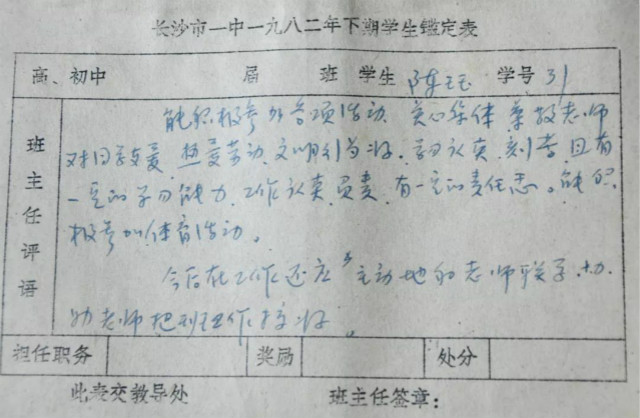 长沙市一中一九八二年下期学生鉴定表
高、初中 届 班 学生 陈玉 学号 31
班主任评语
能积极参加各项活动、关心集体、尊敬老师
对同学友爱、热爱劳动、文明行为好。学习认真、刻苦且有
一定的学习能力、工作认真、负责、有一定的责任感。能积
极参加体育活动。
今后在工作还应主动地和老师联系、协
助老师把班工作搞好
担任职务 奖励 处分
此表交教导处 班主任签章：